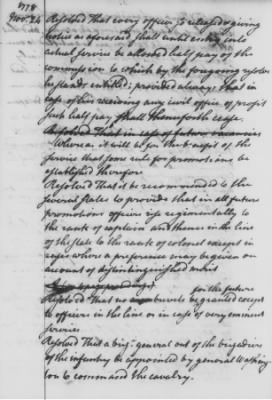 1778
Nov. 24
Resolved That every officer so released & giving
notice as aforesaid shall until entry into
actual service be allowed half pay of the
commission to which by the foregoing resolve
he stands entitled; provided always that in
case of his receiving any civil office of profit
such half pay shall thenceforth cease.
Resolved That in case of future vacancies
Whereas it will be for the benefit of the
service that some rule for promotions be
established therefore
Resolved That it be recommended to the
several states to provide that in all future
promotions officers rise regimentally to
the rank of captain and thence in the line
of the state to the rank of colonel except in
cases where a preference may be given on
account of distinguished merit
for the future
Resolved That no brevets be granted except
to officers in the line or in case of very eminent
services
Resolved That a brig: general out of the brigadiers
of the infantry be appointed by general Washing
ton to command the cavalry.